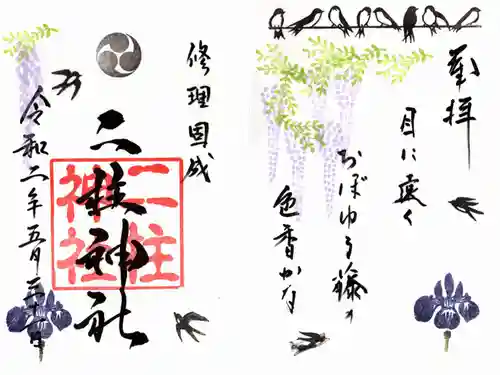 奉拝
目に痩く
おぼゆる藤の
色香かな
修理固成
二柱神社
二柱
神社
令和二年五月三十一日